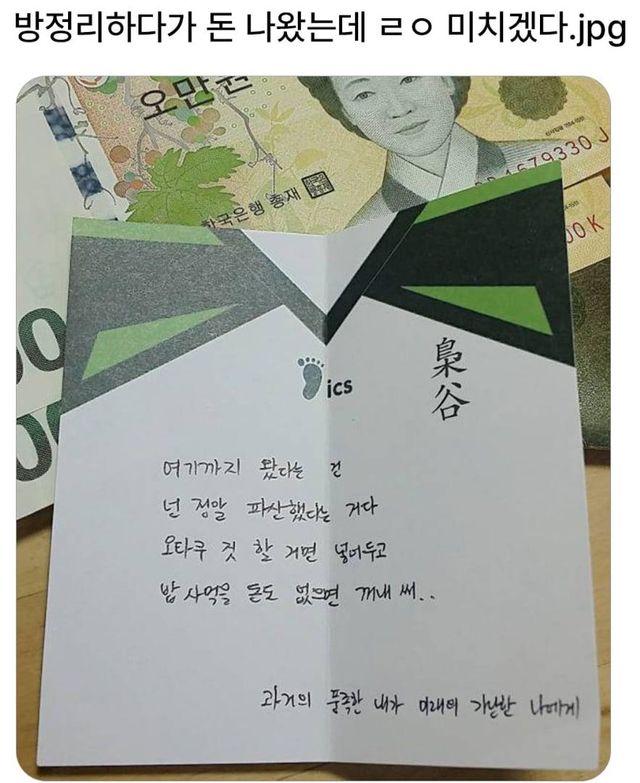 방정리하다가 돈 나왔는데 ㄹㅇ 미치겠다.jpg
오만원
한국은행 총재
1679330 J
00 K
00
00
ics
梟
谷
여기까지 왔다는 건
넌 정말 파산했다는 거다
오타쿠 짓 할 거면 넣어두고
밥 사먹을 돈도 없으면 꺼내 써..
과거의 풍족한 내가 미래의 가난한 나에게